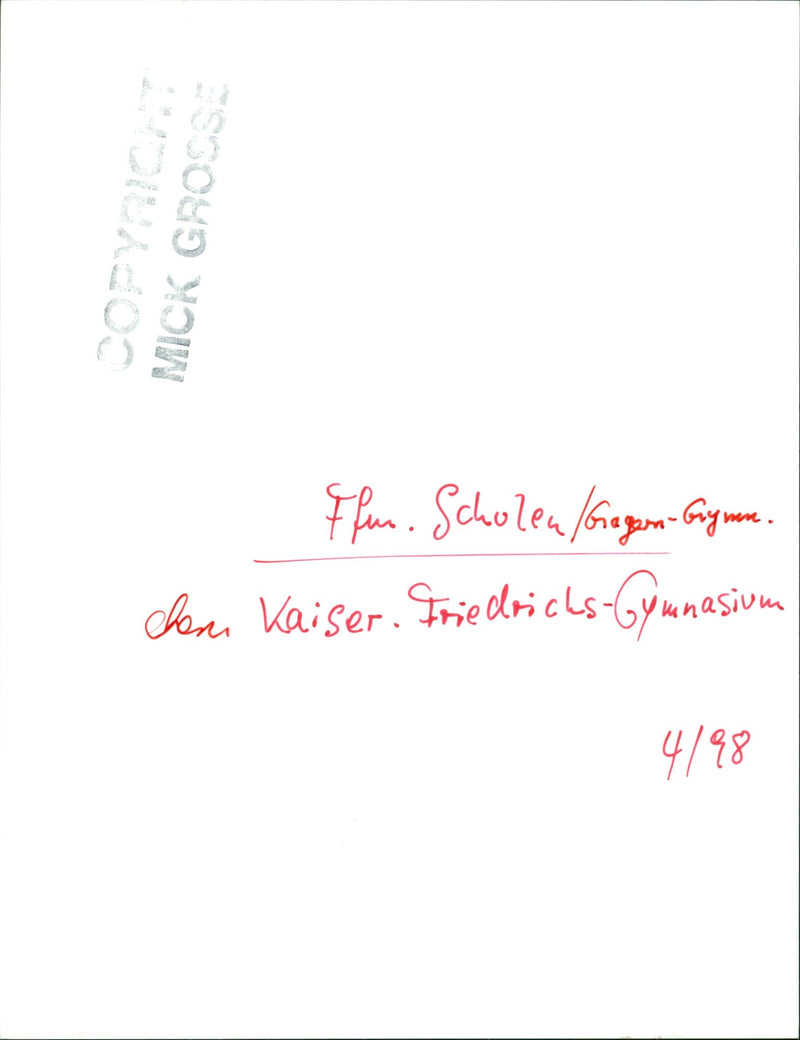 COPYRIGHT
MICK GROSSE
Ffm. Schulen/Gagern-Gymn.
Kaiser.Friedrichs-Gymnasium
4/98